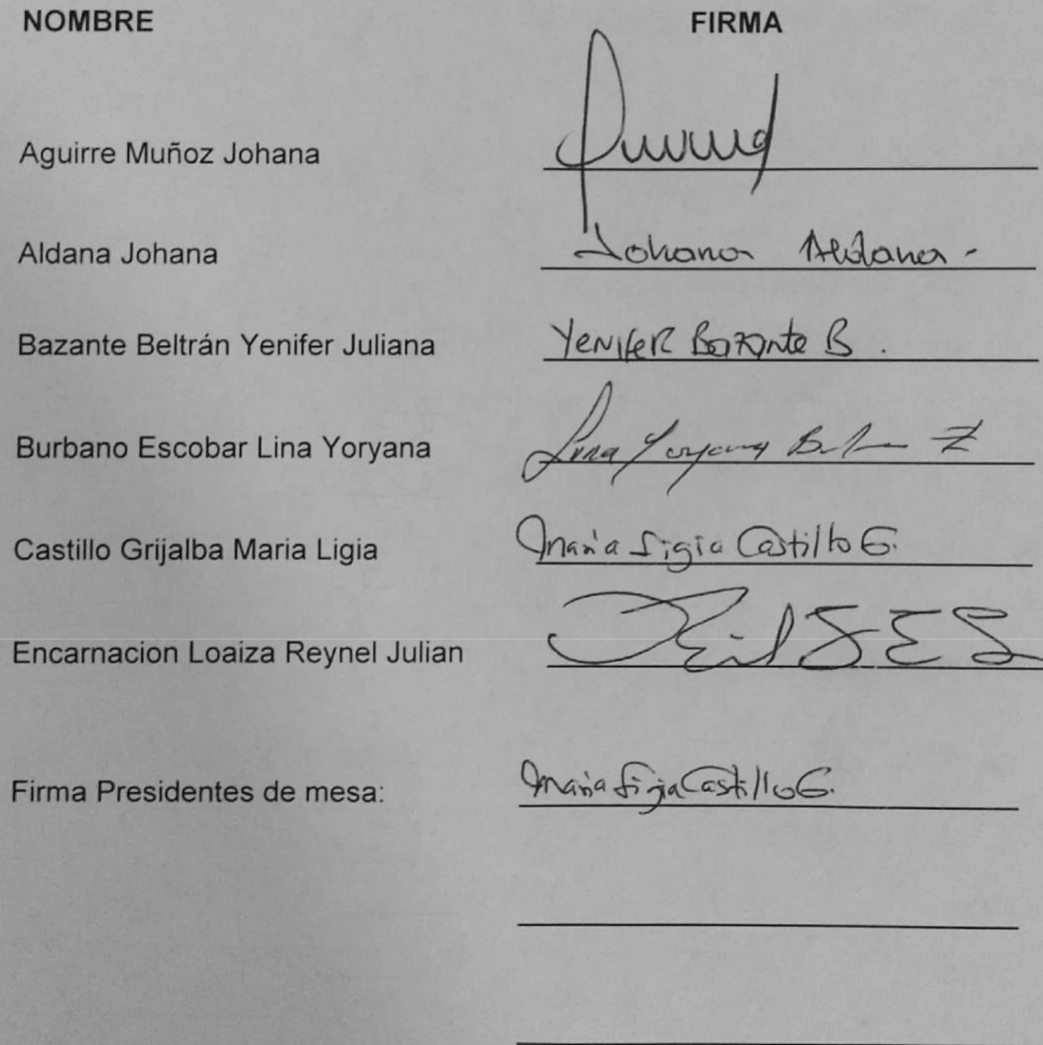 NOMBRE FIRMA
Aguirre Muñoz Johana
Aldana Johana Johana Aldana -
Bazante Beltrán Yenifer Juliana Yenifer Bazante B.
Burbano Escobar Lina Yoryana Lina Yoryana
Castillo Grijalba Maria Ligia Maria Ligia Castillo G.
Encarnacion Loaiza Reynel Julian
Firma Presidentes de mesa: Maria Ligia Castillo G.